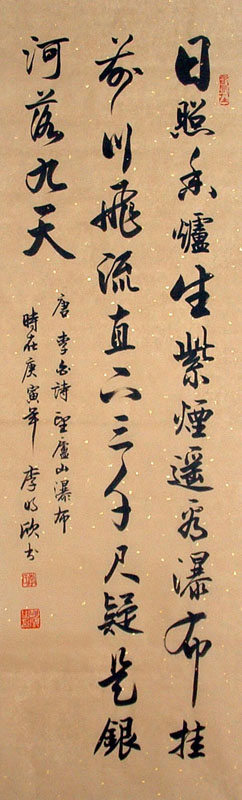 日照香爐生紫煙遥看瀑布挂
前川飛流直下三千尺疑是銀
河落九天
唐李白詩望廬山瀑布
時在庚寅年李明欣书